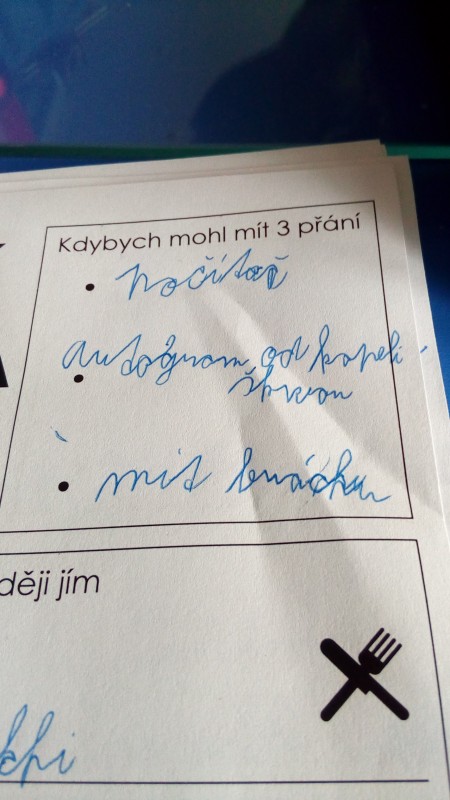 Kdybych mohl mít 3 přání
• počítač
autogram od kapeli
• škwor
• mít bráchu
ději jím